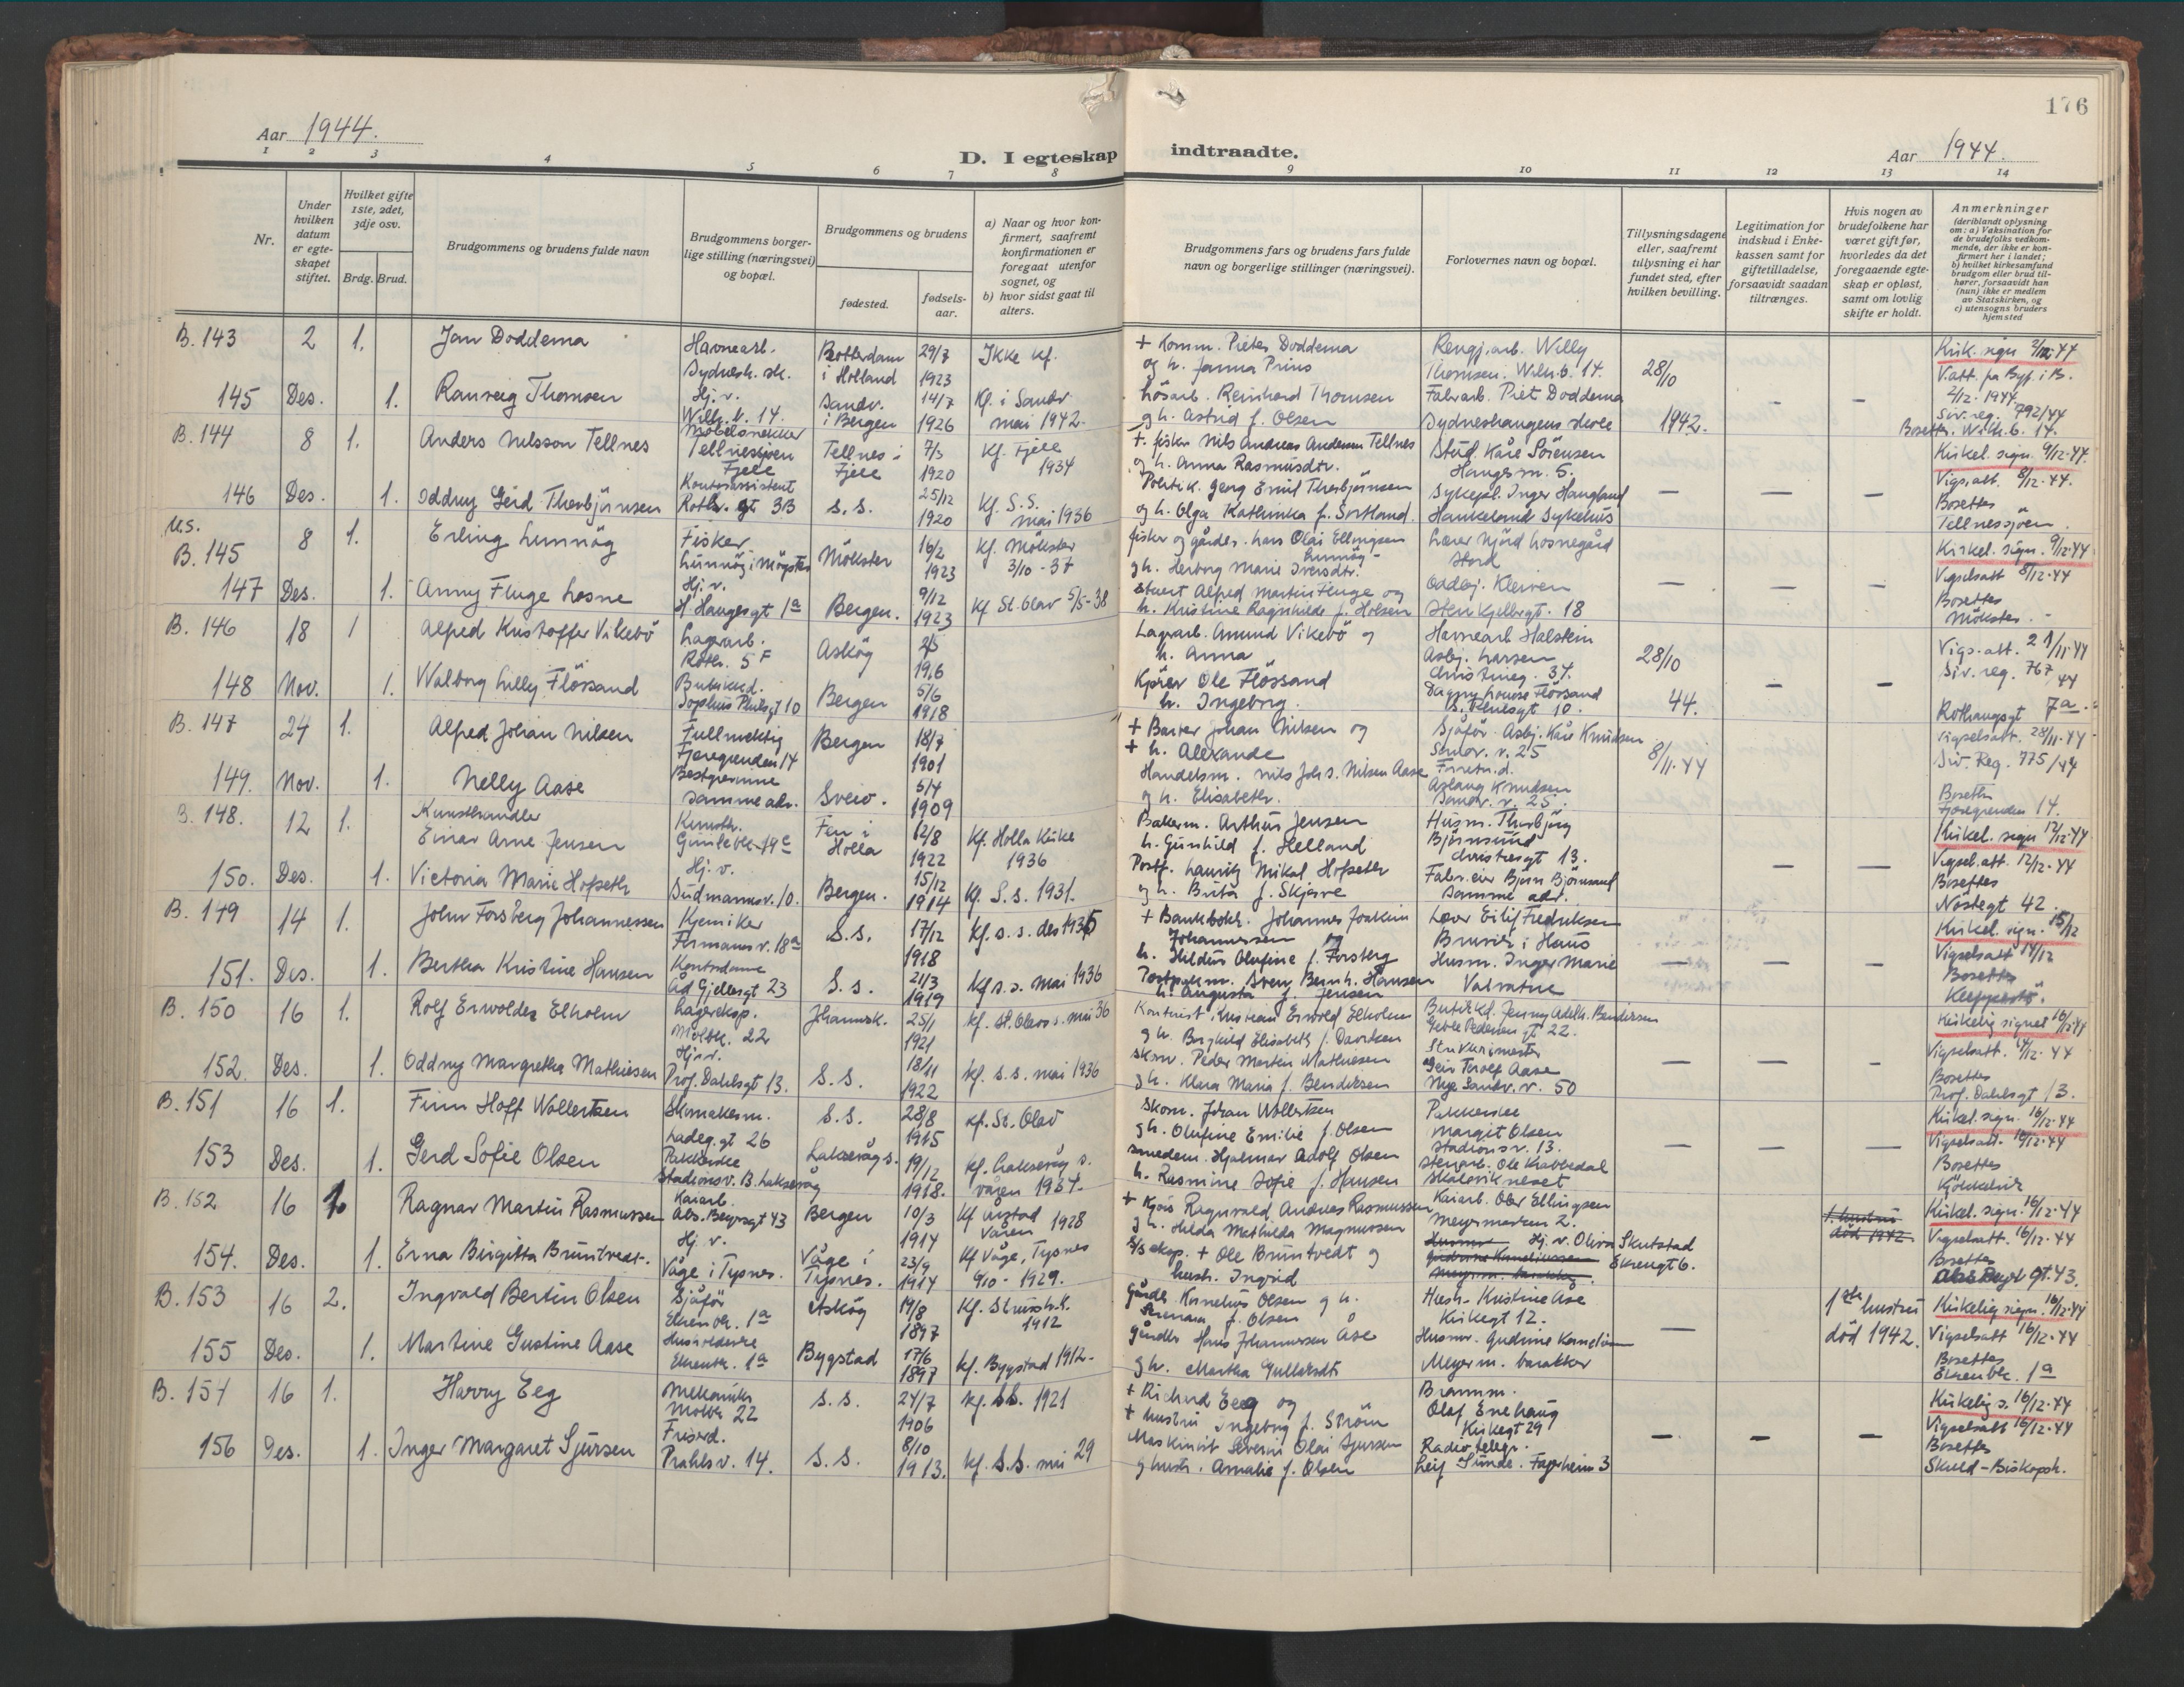 176
Aar 1944.
D. I egteskap indtraadte.
Aar 1944.
1 2 3 4 5 6 7 8 9 10 11 12 13 14
Nr.
Under hvilken datum er egteskapet stiftet.
Hvilket gifte 1ste, 2det, 3dje osv.
Brdg. Brud.
Brudgommens og brudens fulde navn
Brudgommens borgerlige stilling (næringsvei) og bopæl.
Brudgommens og brudens
fødested.
fødselsaar.
a) Naar og hvor konfirmert, saafremt konfirmationen er foregaat utenfor sognet, og
b) hvor sidst gaat til alters.
Brudgommens fars og brudens fars fulde navn og borgerlige stillinger (næringsvei).
Forlovernes navn og bopæl.
Tillysningsdagene eller, saafremt tillysning ei har fundet sted, efter hvilken bevilling.
Legitimation for indskud i Enkekassen samt for giftetilladelse, forsaavidt saadan tiltrænges.
Hvis nogen av brudefolkene har været gift før, hvorledes da det foregaaende egteskap er opløst, samt om lovlig skifte er holdt.
Anmerkninger
(deriblandt oplysning om: a) Vaksination for de brudefolks vedkommende, der ikke er konfirmert her i landet;
b) hvilket kirkesamfund brudgom eller brud tilhører, forsaavidt han (hun) ikke er medlem av Statskirken, og
c) utensogns bruders hjemsted
B. 143 2 1. Jan Doddema Havnearb. Sydnesh. sk. Rotterdam i Holland 29/7 1923 Ikke kf.
+ Komm. Pieter Doddema og h. Janna Prins Rengj.arb. Willy Thomsen. Wilh.b. 14. 28/10 Kirk. sign 2/12-44
145 Des. 1. Ranveig Thomsen Hj. v. Wilh. b. 14. Sandv. i Bergen 14/7 1926 Kf. i Sandv mai 1942.
Løsarb. Reinhard Thomsen g h. Astrid f. Olsen Fabr.arb. Piet Doddema Sydneshaugens skole 1942. V.att. fra Byf. i B. 2/12-1944 Siv. reg. 792/44 Bosettes. Wilh. b. 14.
B. 144 8 1. Anders Nilsson Tellnes Møbelsnekker Tellnessjøen Fjell Tellnes i Fjell 7/3 1920 Kf. Fjell 1934
+ fisker Nils Andreas Andersen Tellnes og h. Anna Rasmusdtr. Stud. Kåre Sörensen Hauges m. 5. Kirkel. sign. 9/12-44.
146 Des. 1. Oddny Gerd Thorbjörnsen Kontorassistent Rothv. gt 3B S. S. 25/12 1920 Kf. S.S. mai 1936
Politik. Georg Emil Thorbjörnsen og h. Olga Kathinka f. Sortland. Sykepl. Inger Haugland Haukeland Sykehus Vigs.att. 8/12-44. Bosettes Tellnessjöen.
u.s.
B. 145 8 1. Erling Lunnøg Fisker Lunnøg i Møgster Møkster 16/2 1923 Kf. Møkster 3/10-37
fisker og gårdbr. Hans Olai Ellingsen Lunnøg g h. Herborg Marie Iversdtr. Lærer Njörd Losnegård Stord Kirkel. sign. 9/12-44
147 Des. 1. Anny Fluge Losne Hj. v. H. Haugesgt 1a Bergen. 9/12 1923 Kf St. Olav 5/5-38
Stuert Alfred Martin Fluge og h. Kristine Ragnhilde f. Holsen Oddbj. Kleiven Sten Kjellsgt. 18 Vigselsatt 8/12-44 Bosettes Møkster.
B. 146 18 1 Alfred Kristoffer Vikebö Lagerarb. Rothv. 5F Askøy
Lagerarb. Amund Vikebö og h. Anna Havnearb Halstein Asbj. Larsen Christineg. 37. 28/10 Vigs.-att. 21/11-44 Siv. reg. 767/44
148 Nov. 1. Walborg Lilly Flössand Butikkd. Sophus Pihlsgt 10 Bergen 5/6 1918
Kjører Ole Flössand h. Ingeborg. Dagny Louise Flössand S. Pihlsgt 10. 44. Rothaugsgt 7a.
B. 147 24 1. Alfred Johan Nilsen Fullmektig Fjæregrenden 14 Bergen 18/7 1901
+ Barber Johan Nilsen og + h. Alexande Sjåför Asbj. Kåre Knudsen Sandv. v. 25 8/11-44 Vigselsatt. 28/11-44 Siv. Reg. 775/44
149. Nov. 1. Nelly Aase Bestyrerinne Samme adr. Sveio. 5/4 1909
Handelsm. Nils Joh. S. Nilsen Aase og h. Elisabeth. Aslaug Knudsen Sandv. v. 25. Bosettes Fjæregrenden 14.
B. 148. 12 1. Kunsthandler Einar Arne Jensen Kunsth. Gunhildbk 19c Fen i Holla 12/8 1922 Kf. Holla Kirke 1936
Bakerm. Arthur Jensen h. Gunhild f. Helland Husm. Thorbjörg Björnsund Christiesgt 13. Kirkel. sign 12/12-44
150. Des. 1. Victoria Marie Hopseth Hj. v. Sudmannsv. 10. Bergen. 15/12 1914 Kf. S.s. 1931.
Postf. Lauritz Mikal Hopseth og h. Brita f. Skjerve Fabr.eier Björn Björnsund Samme adr. Vigsel.att. 12/12-44 Bosettes Nöstegt 42.
B. 149 14 1. John Forsberg Johannessen Kjemiker Formannsv. 18a S.s. 17/12 1918 Kf. s. s. des 1935
+ Bankboth. Johannes Joakim Johannessen og h. Hildur Olufine f. Forsberg Lærer Eilif Fredriksen Bruvik i Haus Kirkel. sign. 15/12
151. Des. 1. Bertha Kristine Hansen Kontordame Ad Gjellesgt 23 S. s. 21/3 1919 Kf s.s. mai 1936
Postpakm. Sverg Bernh. Hansen h. Augusta f. Jensen Husm. Inger Marie Valvatne Vigselsatt 14/12 Bosettes
B. 150 16 1. Rolf Erwolder Elholm Lagereksp. Møllbk. 22 Johannesk. 25/1 1921 kf. St. Olavs s. mai 36
Kontrist Kristian Erwold Elholm g h. Borghild Elisabeth f. Davidsen Butikkd. Jenny Adelh. Bendixsen Geble Pedersen gt 22. Kirkelig signet 16/12-44
152. Des. 1. Oddny Margretha Mathiesen Hj.v. Prof. Dahlsgt 13. S. S. 18/11 1922 kf. s.s. mai 1936
Skrw. Peder Martin Mathiesen g h. Klara Maria f. Bendixsen Geir Torolf Aase Nye Sandv. v. 50 Vigselsatt. 14/12-44 Bosettes Prof. Dahlsgt 13.
B. 151 16 1. Finn Hoff Wollertsen Skomakerm. Ladeg.gt 26 S.S. 28/8 1915 kf. St. Olav
Skom. Johan Wollertsen g h. Olufine Emilie f. Olsen Pakkerske Margit Olsen Stadionsv. 13. Kirkel. sign. 16/12-44
153 Des. 1. Gerd Sofie Olsen Pakkerske Stadionsv. B. Laksevåg Laksevåg s. 19/12 1918. Kf. Laksevåg s. våren 1934.
Smedem. Hjalmar Adolf Olsen h. Rasmine Sofie f. Hansen Stenarb. Ole Krabbedal Skålevikneset Vigselsatt. 16/12-44 Bosettes Gjökkelvik
B. 152 16 1. Ragnar Martin Rasmussen Kaiarb. Abs. Beyersgt 43 Bergen 10/3 1914 Kf Årstad Våren 1928
+ Kjörs Ragnvald Andreas Rasmussen g h. Hilda Mathilda Magnussen Kaiarb. Olav Ellingsen Meyermarken 2. 1. hustru död 1942. Kirkel. sign. 16/12-44
154. Des. 1. Erna Birgitta Bruntveat. Hj. v. Våge i Tysnes. Våge i Tysnes. 23/9 1914 Kf Våge, Tysnes 9/10-1929.
S/s eksp. + Ole Bruntvedt og hustr. Ingrid Hj. v. Oliva Skutstad Ekrengt 6. Vigselsatt. 16/12-44 Bosettes Abs Beyer gt. 43.
B. 153 16 2. Ingvald Bertin Olsen Sjåför Ekrenbk. 1a Askøy 19/8 1897 Kf. Strusshk. 1912
Gårdbr Kornelius Olsen g h. f. Olsen Hush. Kristine Ase Kirkegt 12. 1ste hustru död 1942. Kirkelig sign. 16/12-44
155 Des. 1. Martine Gustine Aase Husholderske Ekrenbk. 1a Bygstad 17/6 1897 kf. Bygstad 1912.
Gårdbr Hans Johannessen Åse g h. Martha Gullaksdt. Husmor. Gudrine Kornelius Meyerm. barakker Vigselsatt 16/12-44 Bosettes Ekrenbk. 1a
B. 154 16 1. Harry Eeg Mekaniker Møllbk 22 S. S. 24/7 1906 Kf. S.S. 1921
+ Richard Eeg og + hustru Ingeborg f. Ström Brannm. Olaf Enehaug Kirkegt 29 Kirkelig s. 16/12-44
156 Des. 1. Inger Margaret Sjursen Friserd. Prahlsv. 14. S. S. 8/10 1913. kf. S.S. mai 29
Maskinist Severin Olai Sjursen g hustr. Amalie f. Olsen Radiotelegr. Leif Sunde. Fagerheim 3 Vigselsatt 16/12-44 Bosettes Skuld-Biskopsh.